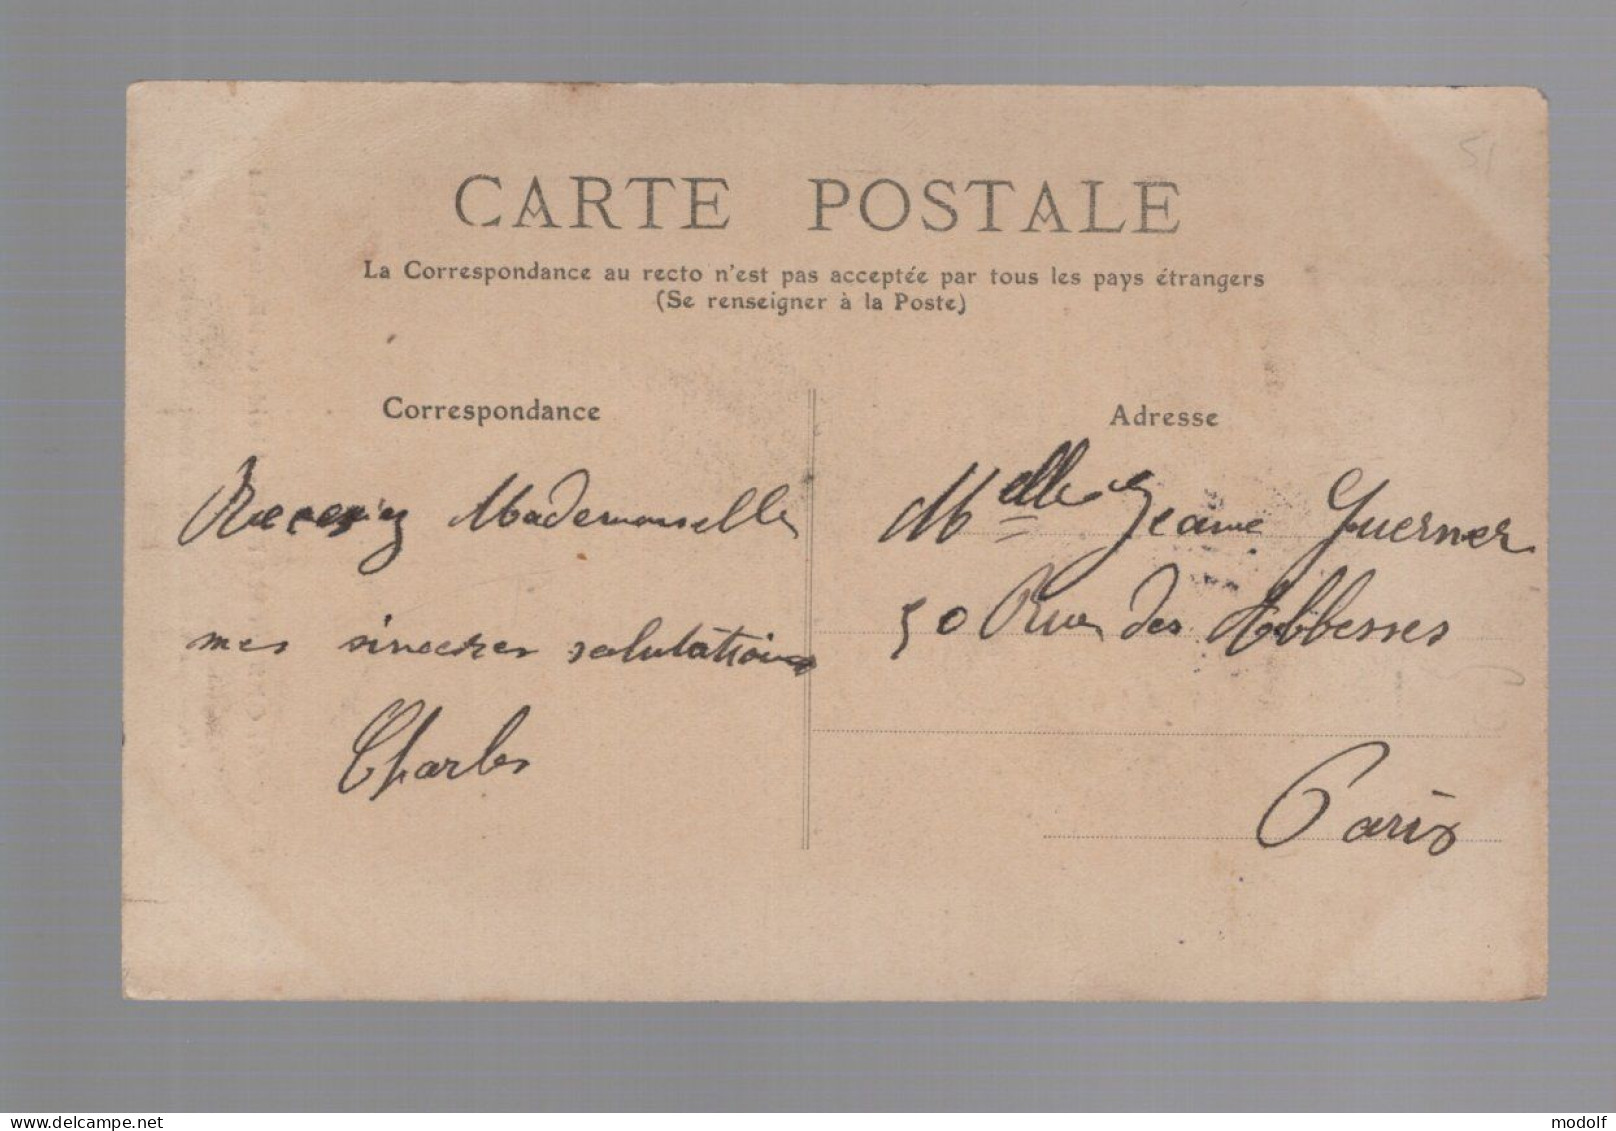 51
CARTE POSTALE
La Correspondance au recto n'est pas acceptée par tous les pays étrangers
(Se renseigner à la Poste)
Correspondance
Recevez Mademoiselle
mes sincères salutations
Charles
Adresse
Melle Jeanne Guerner
50 Rue des Abbesses
Paris
delcampe.net
modolf